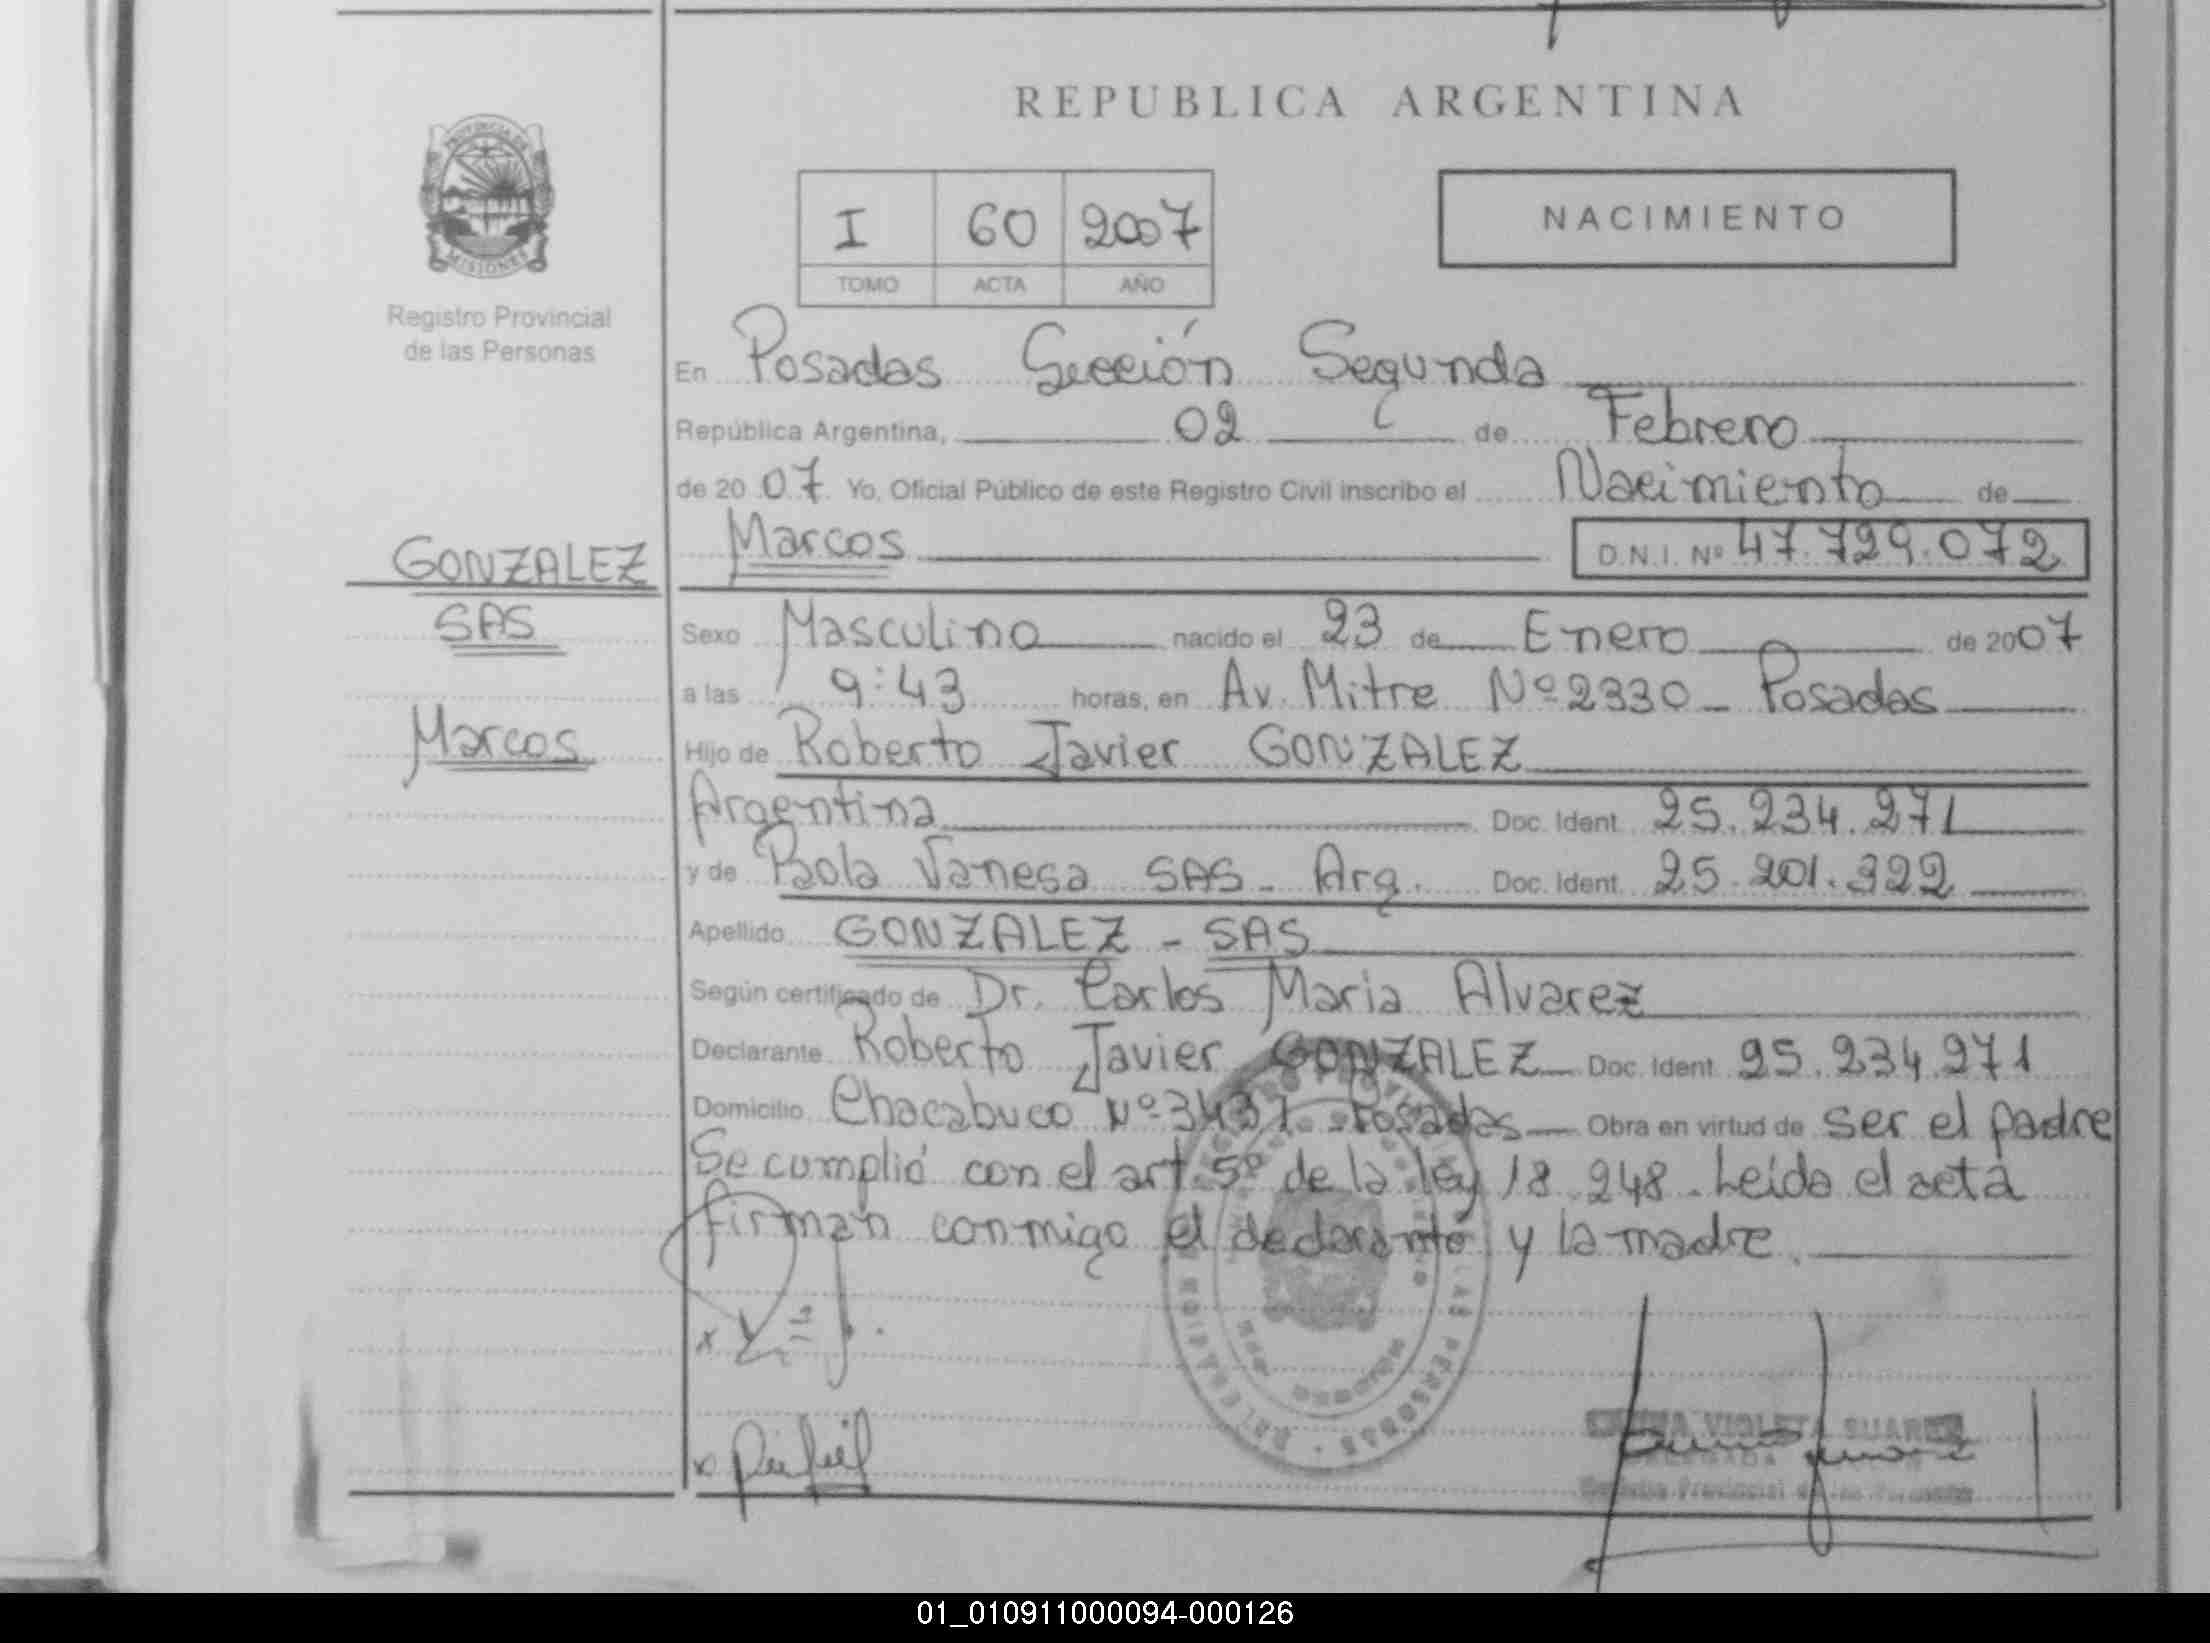 REPUBLICA ARGENTINA
PROVINCIA DE
MISIONES
Registro Provincial
de las Personas
I 60 2007
TOMO ACTA AÑO
NACIMIENTO
En Posadas Sección Segunda
República Argentina, 02 de Febrero
de 20 07 Yo, Oficial Público de este Registro Civil inscribo el Nacimiento de
GONZALEZ Marcos D.N.I. Nº 47.729.072
SAS Sexo Masculino nacido el 23 de Enero de 2007
a las 9:43 horas, en Av. Mitre Nº 2330 - Posadas
Marcos Hijo de Roberto Javier GONZALEZ
Argentina Doc. Ident. 25.234.271
y de Paola Vanesa SAS - Arg. Doc. Ident. 25.201.322
Apellido GONZALEZ - SAS
Según certificado de Dr. Carlos Maria Alvarez
Declarante Roberto Javier GONZALEZ Doc. Ident. 25.234.271
Domicilio Chacabuco Nº 3437 Posadas Obra en virtud de ser el padre
Se cumplió con el art. 5º de la ley 18.248. Leída el acta
firman conmigo el declarante y la madre.
VIOLETA SUAREZ
DELEGADA
Registro Provincial de las Personas
01_010911000094-000126